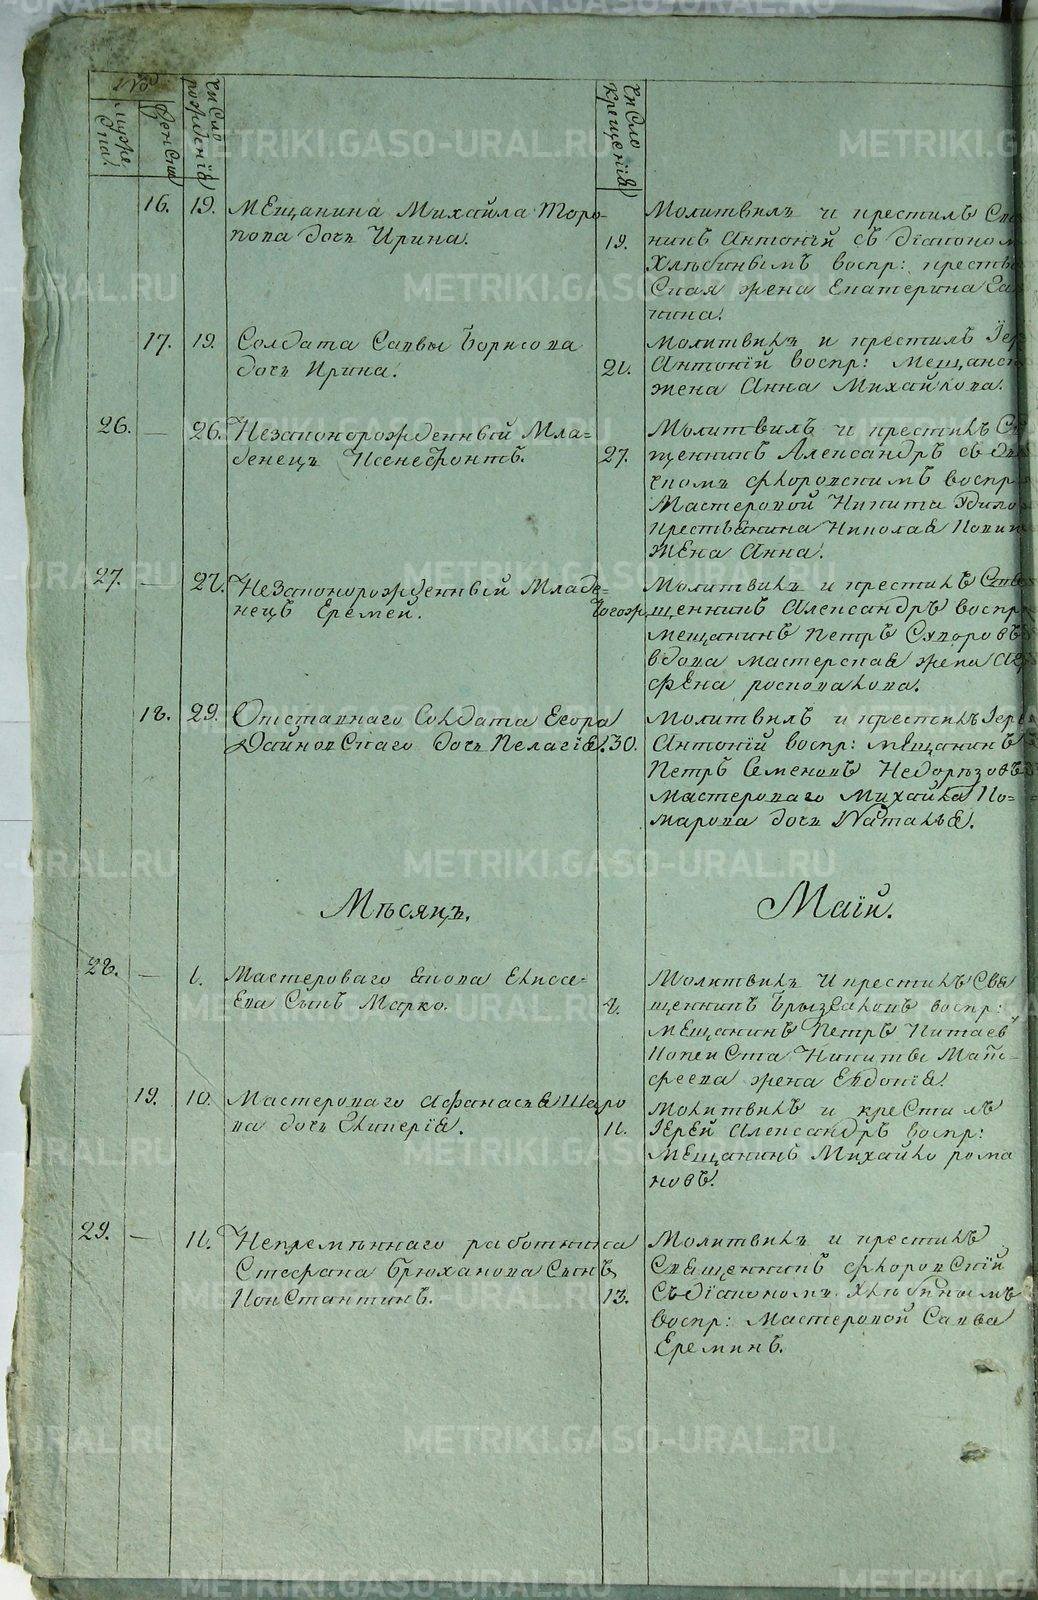 №
мужеска
женска
Число рожденія
Число Крещенія
16. 19. Мещанина Михайла Торо-
пова дочь Ирина.
19.
Молитвилъ и крестилъ Свя
никъ Антоній съ діакономъ
Хлѣбинымъ воспр: крестья
ская жена Екатерина
17. 19. Солдата Саввы Борисова
дочь Ирина.
21.
Молитвилъ и крестилъ Іер
Антоній воспр: Мещанск
жена Анна Михайлова.
26. — 26. Незаконорожденный Мла-
денецъ Ксенефонтъ.
27.
Молитвилъ и крестилъ Свя
щенникъ Александръ съ дья
кномъ Флоровскимъ воспр
Мастеровой Никита
крестьянина Николая
жена Анна.
27. — 27. Незаконорожденный Младе-
нецъ Еремей.
Тогож
Молитвилъ и крестилъ Свя
щенникъ Александръ воспр
мещанинъ Петръ Суворовъ
вдова мастерская жена
фена
18. 29. Отставнаго Солдата Егора
Дайновскаго дочь Пелагія.
30.
Молитвилъ и крестилъ Іере
Антоній воспр: мещанинъ
Петръ Семеновъ Недорѣзовъ
мастероваго Михайла Ко-
марова дочь Наталья.
Мѣсяцъ. Маій.
28. — 1. Мастероваго Якова Елисе-
ева Сынъ Марко.
2.
Молитвилъ и крестилъ Свя
щенникъ Брызгаловъ воспр:
мещанинъ Петръ Китаев
Копеиста Никиты Мат-
феева жена Евдокія.
19. 10. Мастероваго Афанасья Шаро
ва дочь Гликерія.
11.
Молитвилъ и крестилъ
Іерей Александръ воспр:
мещанинъ Михайло рома
новъ.
29. — 11. Непремѣннаго работника
Стефана Брюханова Сынъ
Константинъ.
13.
Молитвилъ и крестилъ
Священникъ Флоровскій
съ діакономъ Хлѣбинымъ
воспр: Мастеровой Савва
Ереминъ.
METRIKI.GASO-URAL.RU